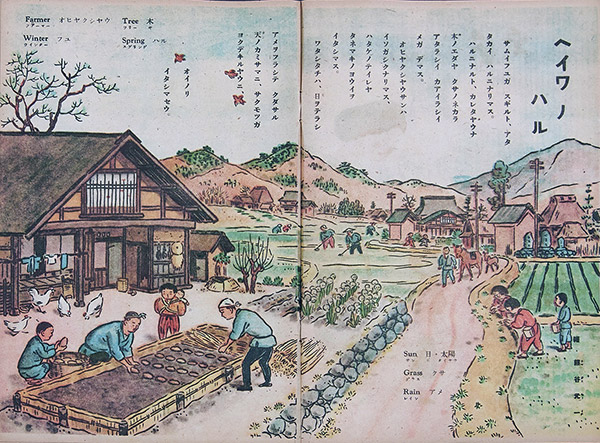 ヘイワノ
ハル
サムイフユガ スギルト、アタ
タカイ、ハルニナリマス。
ハルニナルト、カレタヤウナ
木ノエダヤ クサノネカラ
アタラシイ カアイラシイ
メガ デマス。
オヒヤクシヤウサンハ
イソガシクナリマス。
ハタケノテイレヤ
タネマキノヨウイヲ
イタシマス。
ワタシタチハ、日ヲテラシ
アメヲフラシテ クダサル
天ノカミサマニ、サクモツガ
ヨクデキルヤウニ、
オイノリ
イタシマセウ。
Farmer オヒヤクシヤウ
フアーマー
Winter フユ
ウインター
Tree 木
ツリー キ
Spring ハル
スプリング
Sun 日・太陽
サン ヒ タイヨウ
Grass クサ
グラス
Rain アメ
レイン